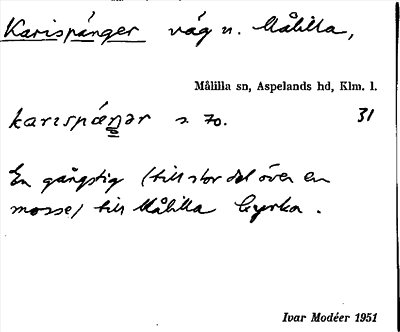 Karispånger väg n. Målilla,
Målilla sn, Aspelands hd, Klm. l.
31
karıspáŋər s. 70.
En gångstig (till stor del över en
mosse) till Målilla kyrka.
Ivar Modéer 1951